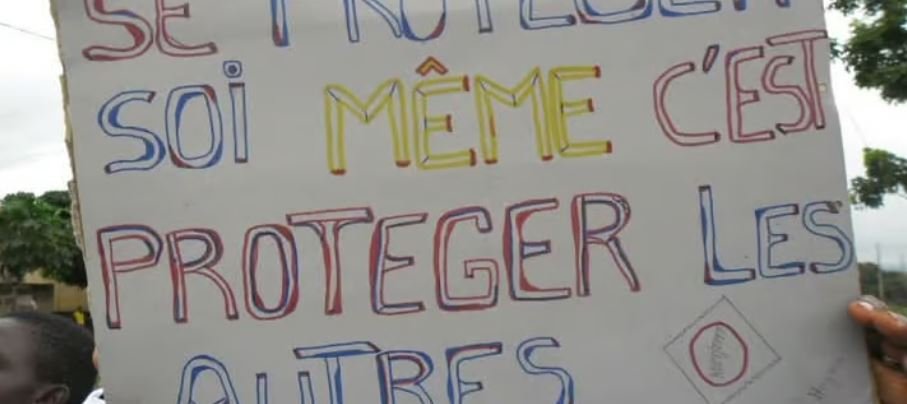 SE PROTEGER
SOi MÊME C'EST
PROTEGER LES
AUTRES